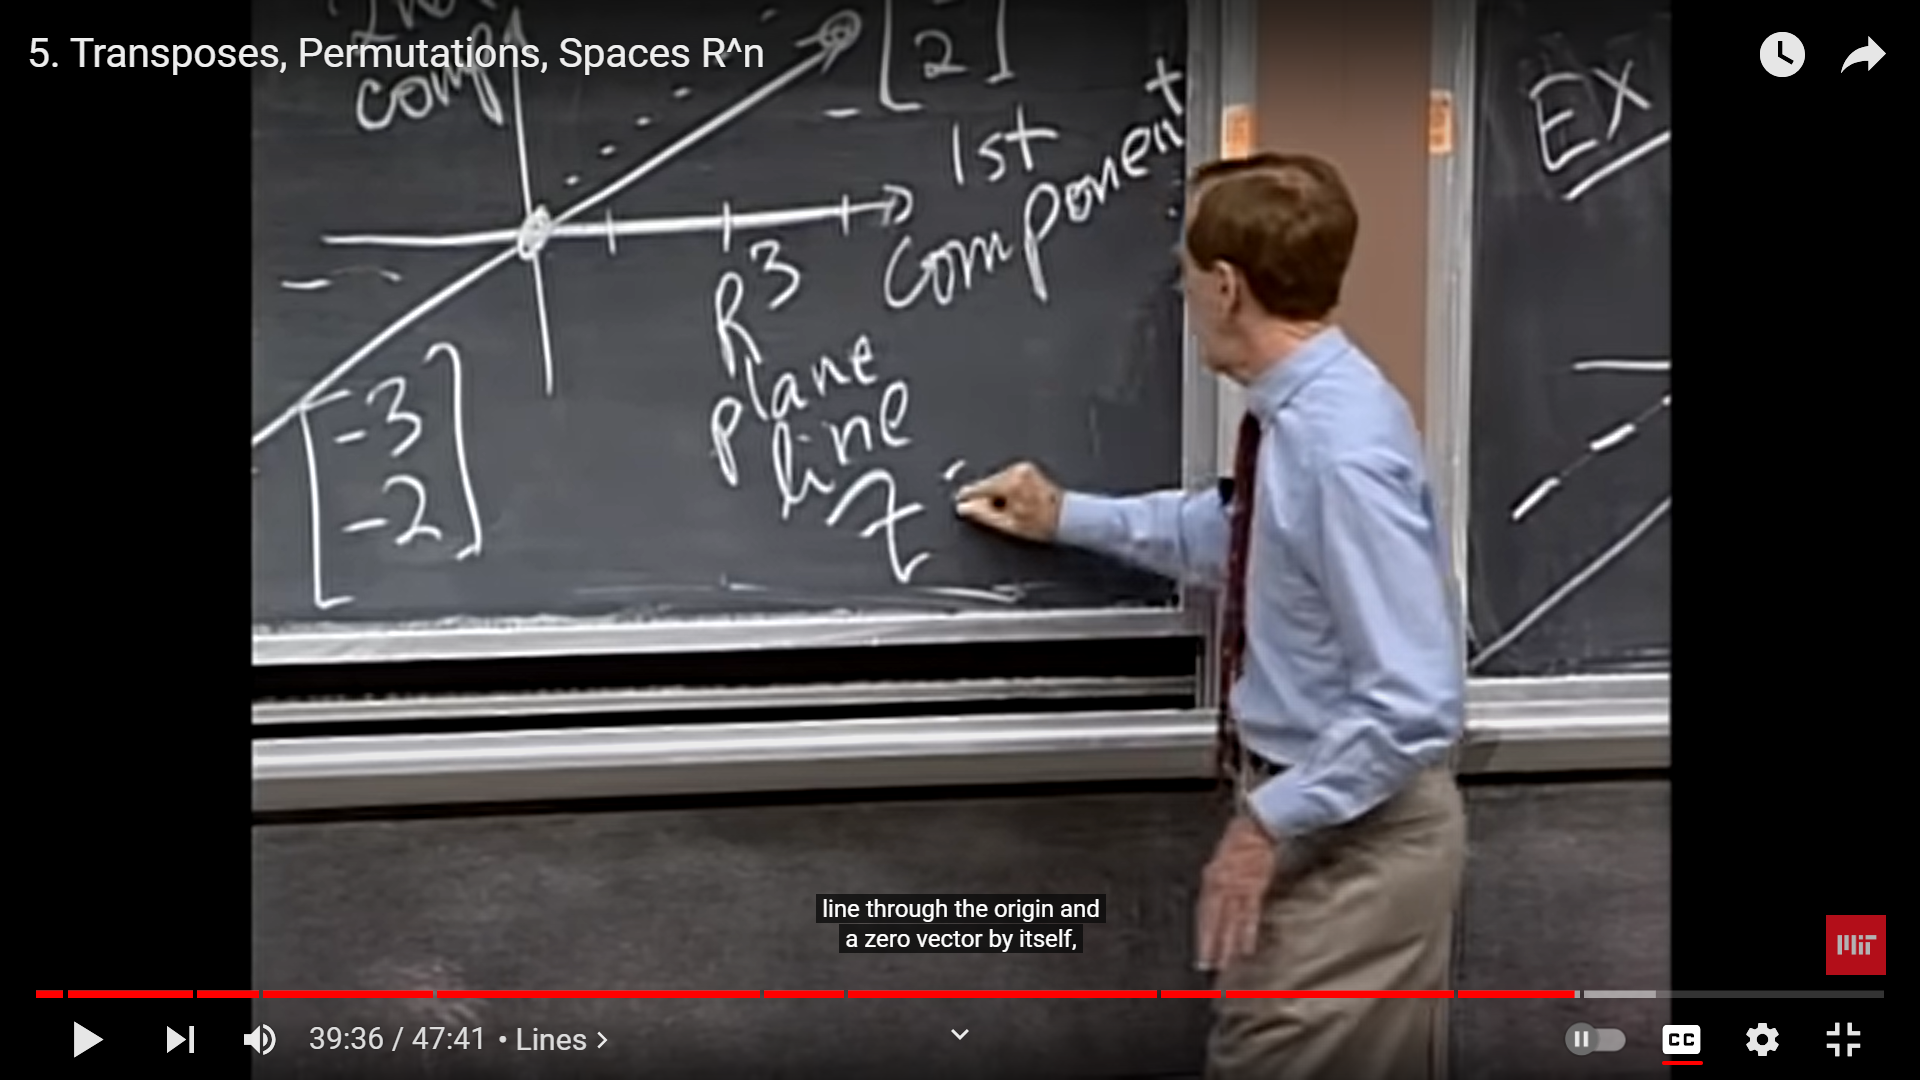 5. Transposes, Permutations, Spaces R^n
comp
2
1st
component
EX
R3
plane
line
Z
-3
-2
line through the origin and
a zero vector by itself,
MIT
39:36 / 47:41 • Lines >
CC